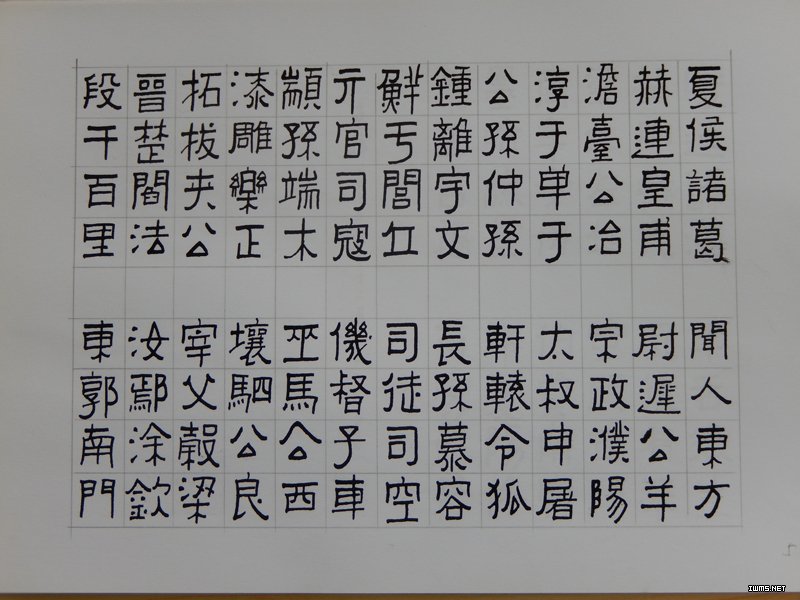 夏侯諸葛 聞人東方
赫連皇甫 尉遲公羊
澹臺公冶 宗政濮陽
淳于单于 太叔申屠
公孫仲孫 軒轅令狐
鍾離宇文 長孫慕容
鮮亏閭丘 司徒司空
亓官司寇 僟督子車
顓孫端木 巫馬公西
漆雕樂正 壤駟公良
拓拔夹公 宰父穀梁
晉楚閻法 汝鄢涂欽
段干百里 東郭南門
IWMS.NET